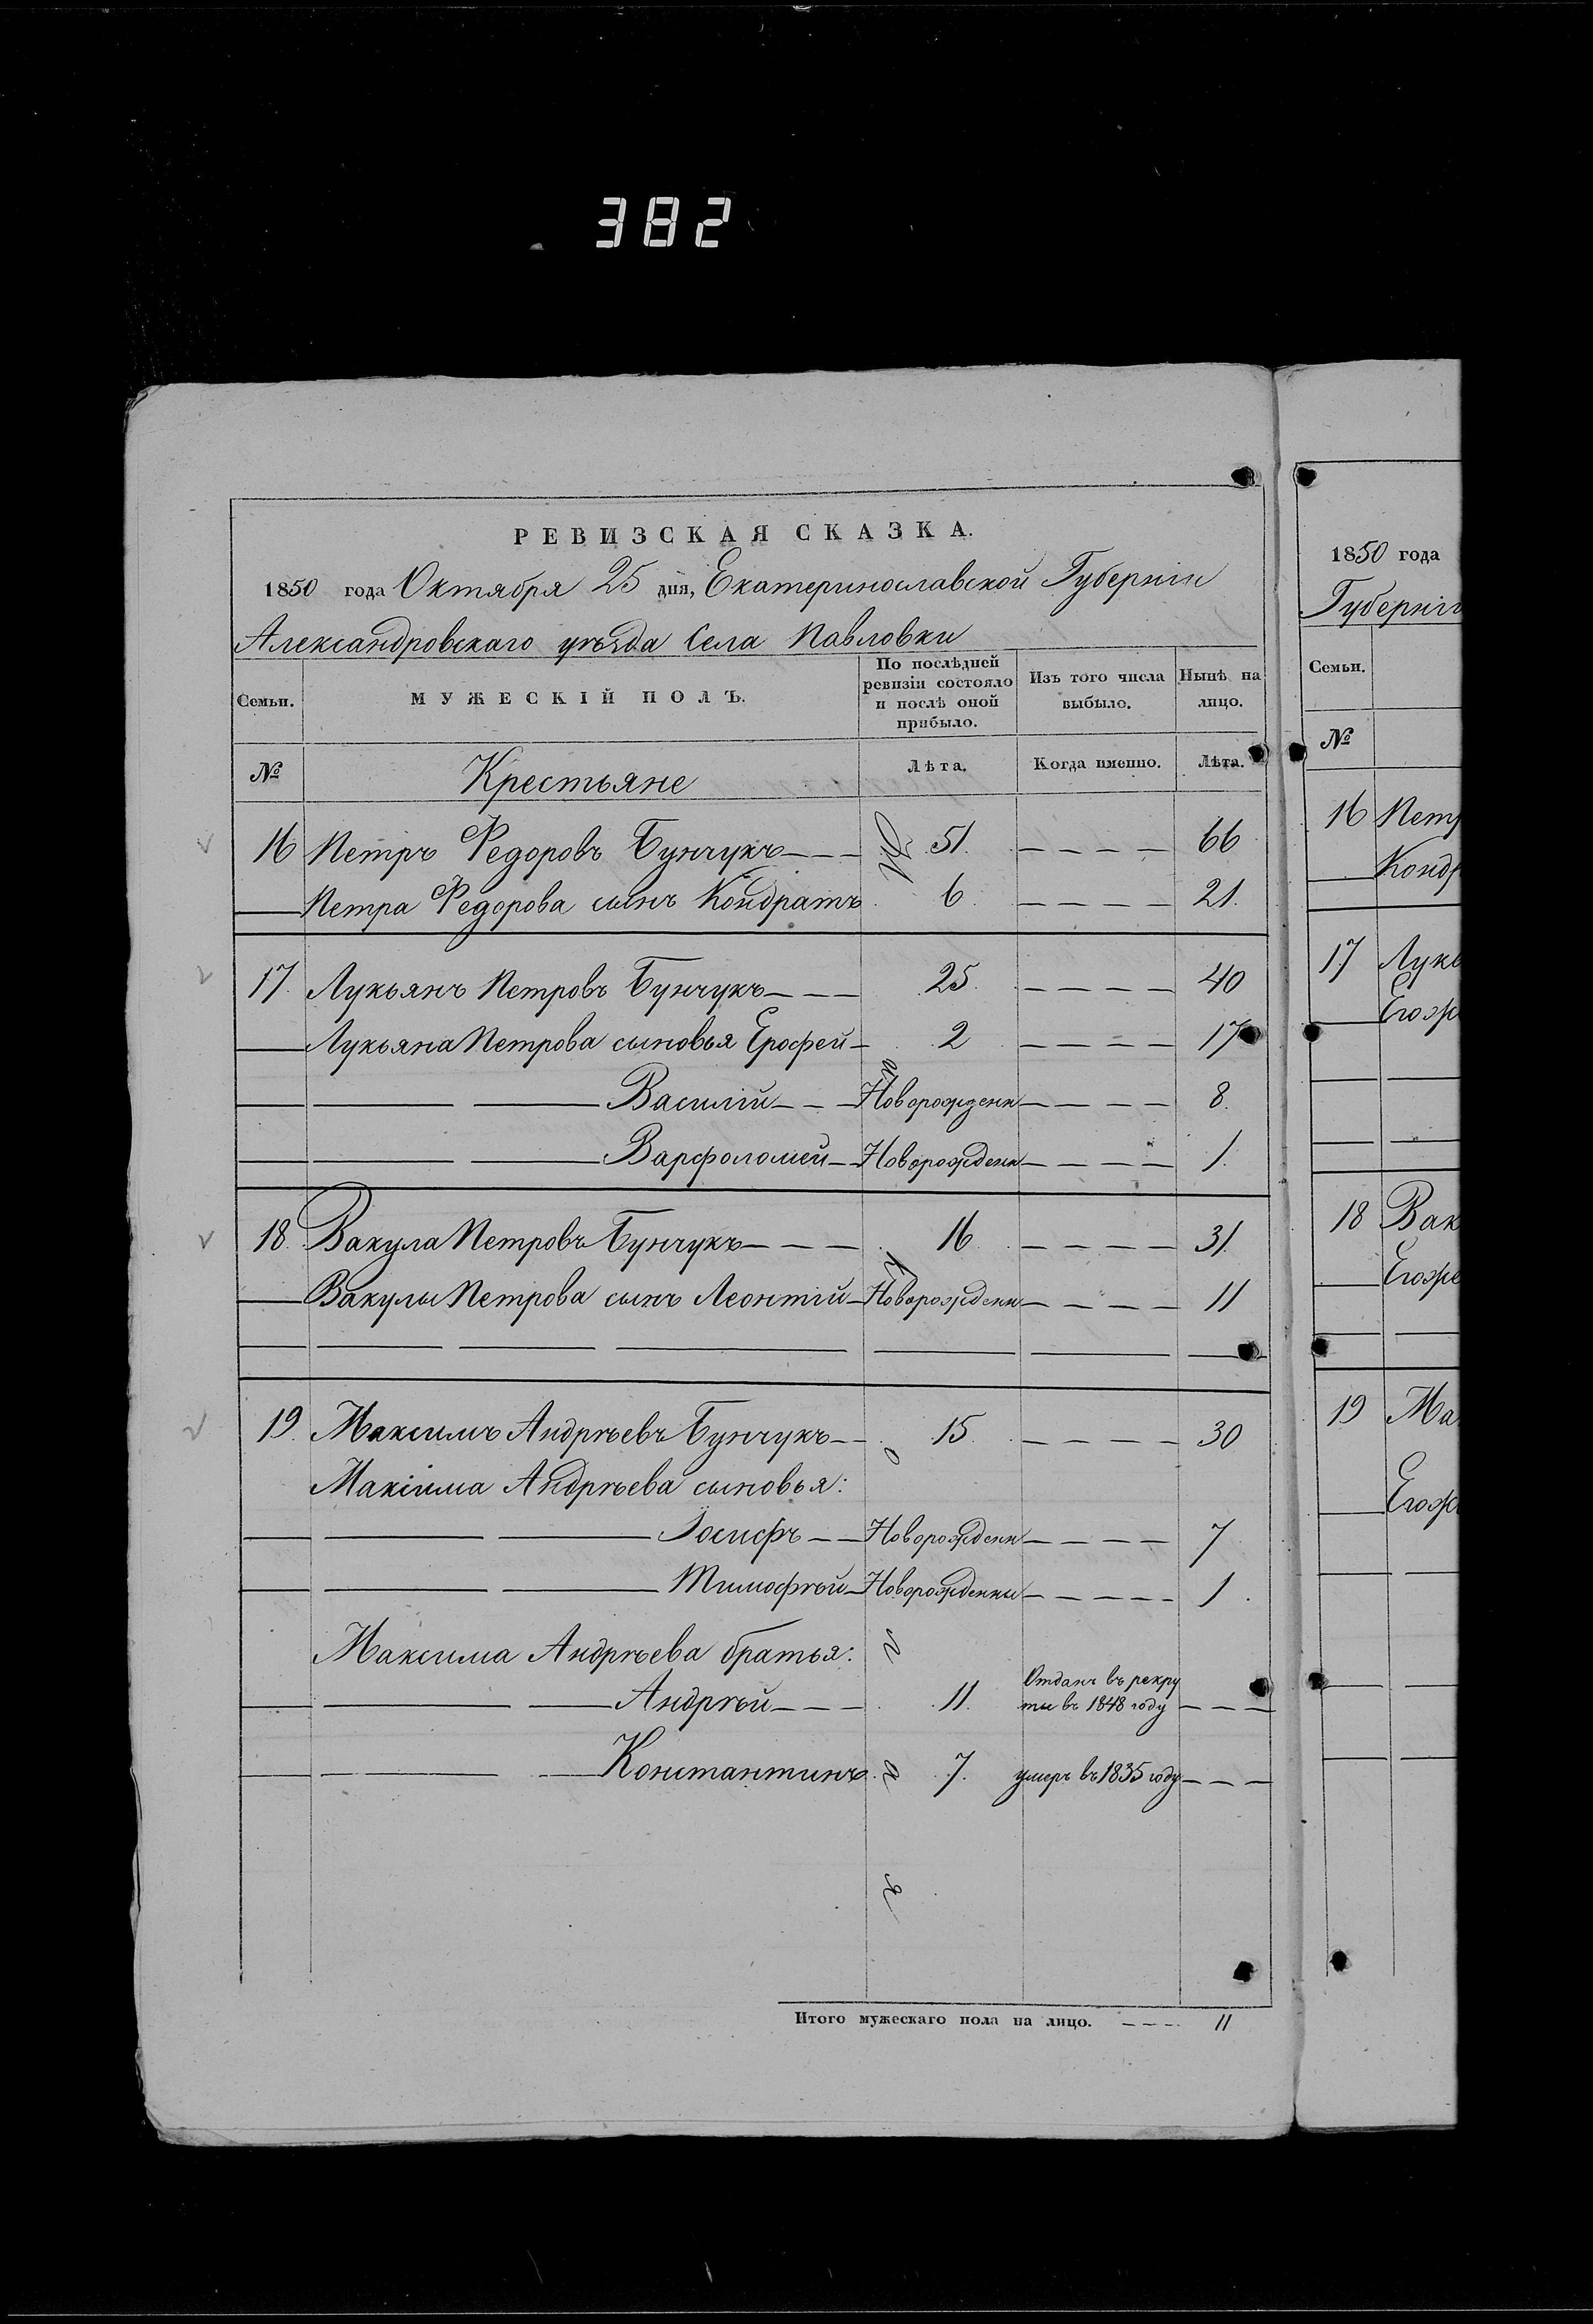 382
РЕВИЗСКАЯ СКАЗКА.
1850 года Октября 25 дня, Екатеринославской Губерніи
Александровскаго уѣзда Села Павловки
Семьи. МУЖЕСКІЙ ПОЛЪ. По послѣдней ревизіи состояло и послѣ оной прибыло. Изъ того числа выбыло. Нынѣ на лицо.
№ Крестьяне Лѣта. Когда именно. Лѣта.
16 Петръ Федоровъ Бунчукъ 51. 66
Петра Федорова сынъ Кондратъ 6. 21.
17. Лукьянъ Петровъ Бунчукъ 25. 40
Лукьяна Петрова сыновья Ерофей 2 17
Василій Новорожденн 8.
Варфоломей Новорожденн 1.
18. Вакула Петровъ Бунчукъ 16 31.
Вакулы Петрова сынъ Леонтій Новорожденн 11
19. Максимъ Андрѣевъ Бунчукъ 15. 30
Максима Андрѣева сыновья:
Іосифъ Новорожденн 7
Тимофѣй Новорожденны 1.
Максима Андрѣева братья:
Андрѣй 11. Отданъ въ рекру
ты въ 1848 году
Константинъ 7. умеръ въ 1835 году
Итого мужескаго пола на лицо. 11
1850 года
Губерніи
Семьи.
№
16 Петр
Кондр
17 Лукь
Егоже
18 Вак
Егоже
19 Мак
Егоже